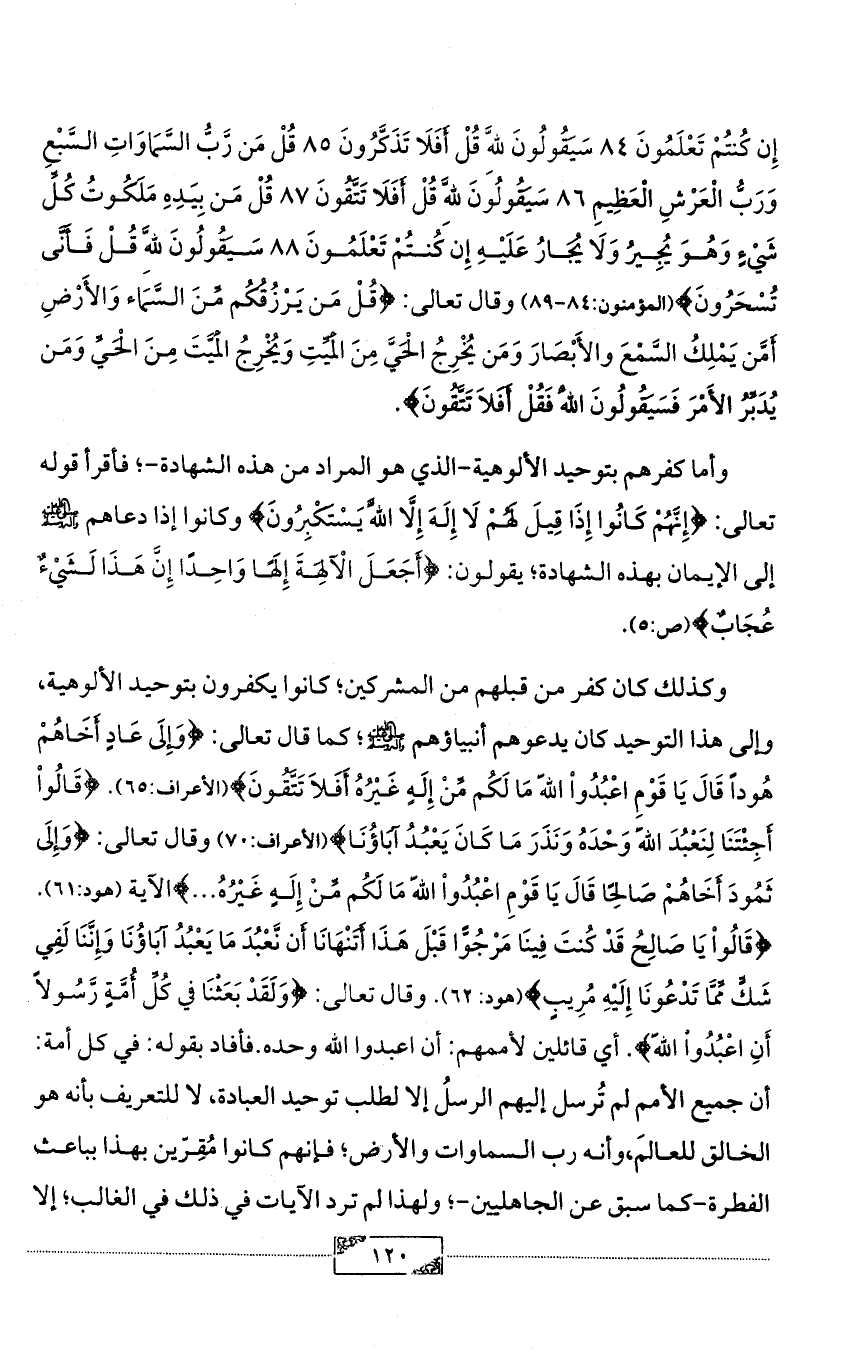 إِن كُنتُمْ تَعْلَمُونَ ٨٤ سَيَقُولُونَ لِلَّهِ قُلْ أَفَلَا تَذَكَّرُونَ ٨٥ قُلْ مَن رَّبُّ السَّمَاوَاتِ السَّبْعِ
وَرَبُّ الْعَرْشِ الْعَظِيمِ ٨٦ سَيَقُولُونَ لِلَّهِ قُلْ أَفَلَا تَتَّقُونَ ٨٧ قُلْ مَن بِيَدِهِ مَلَكُوتُ كُلِّ
شَيْءٍ وَهُوَ يُجِيرُ وَلَا يُجَارُ عَلَيْهِ إِن كُنتُمْ تَعْلَمُونَ ٨٨ سَيَقُولُونَ لِلَّهِ قُلْ فَأَنَّى
تُسْحَرُونَ﴾(المؤمنون:٨٤-٨٩) وقال تعالى: ﴿قُلْ مَن يَرْزُقُكُم مِّنَ السَّمَاء وَالأَرْضِ
أَمَّن يَمْلِكُ السَّمْعَ والأَبْصَارَ وَمَن يُخْرِجُ الحَيَّ مِنَ المَيِّتِ وَيُخْرِجُ المَيَّتَ مِنَ الحَيِّ وَمَن
يُدَبِّرُ الأَمْرَ فَسَيَقُولُونَ اللهُ فَقُلْ أَفَلاَ تَتَّقُونَ﴾.
وأما كفرهم بتوحيد الألوهية-الذي هو المراد من هذه الشهادة-؛ فأقرأ قوله
تعالى: ﴿إِنَّهُمْ كَانُوا إِذَا قِيلَ لَهُمْ لَا إِلَهَ إِلَّا اللهُ يَسْتَكْبِرُونَ﴾ وكانوا إذا دعاهم ﷺ
إلى الإيمان بهذه الشهادة؛ يقولون: ﴿أَجَعَلَ الْآلِهَةَ إِلَهًا وَاحِدًا إِنَّ هَذَا لَشَيْءٌ
عُجَابٌ﴾(ص:٥).
وكذلك كان كفر من قبلهم من المشركين؛ كانوا يكفرون بتوحيد الألوهية،
وإلى هذا التوحيد كان يدعوهم أنبياؤهم ؛ كما قال تعالى: ﴿وَإِلَى عَادٍ أَخَاهُمْ
هُوداً قَالَ يَا قَوْمِ اعْبُدُواْ اللهَ مَا لَكُم مِّنْ إِلَهٍ غَيْرُهُ أَفَلاَ تَتَّقُونَ﴾(الأعراف:٦٥). ﴿قَالُواْ
أَجِئْتَنَا لِنَعْبُدَ اللهَ وَحْدَهُ وَنَذَرَ مَا كَانَ يَعْبُدُ آبَاؤُنَا﴾(الأعراف:٧٠) وقال تعالى: ﴿وَإِلَى
ثَمُودَ أَخَاهُمْ صَالِحًا قَالَ يَا قَوْمِ اعْبُدُواْ اللهَ مَا لَكُم مِّنْ إِلَهٍ غَيْرُهُ...﴾الآية (هود:٦١).
﴿قَالُواْ يَا صَالِحُ قَدْ كُنتَ فِينَا مَرْجُوًّا قَبْلَ هَذَا أَتَنْهَانَا أَن نَّعْبُدَ مَا يَعْبُدُ آبَاؤُنَا وَإِنَّنَا لَفِي
شَكٍّ مِّمَّا تَدْعُونَا إِلَيْهِ مُرِيبٍ﴾(هود: ٦٢). وقال تعالى: ﴿وَلَقَدْ بَعَثْنَا فِي كُلِّ أُمَّةٍ رَّسُولاً
أَنِ اعْبُدُواْ اللهَ﴾. أي قائلين لأممهم: أن اعبدوا الله وحده.فأفاد بقوله: في كل أمة:
أن جميع الأمم لم تُرسل إليهم الرسلُ إلا لطلب توحيد العبادة، لا للتعريف بأنه هو
الخالق للعالمَ،وأنه رب السماوات والأرض؛ فإنهم كانوا مُقِرّين بهذا بباعث
الفطرة-كما سبق عن الجاهليين-؛ ولهذا لم ترد الآيات في ذلك في الغالب؛ إلا
١٢٠